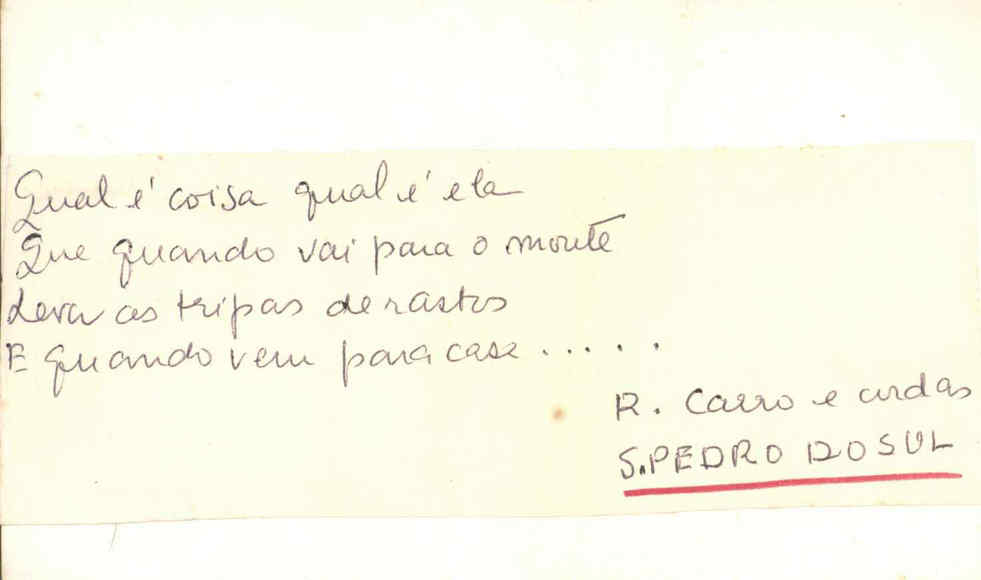 Qual é coisa qual é ela
Que quando vai para o monte
Leva as tripas de rastos
E quando vem para casa .....
R. Carro e cordas
S.PEDRO DO SUL